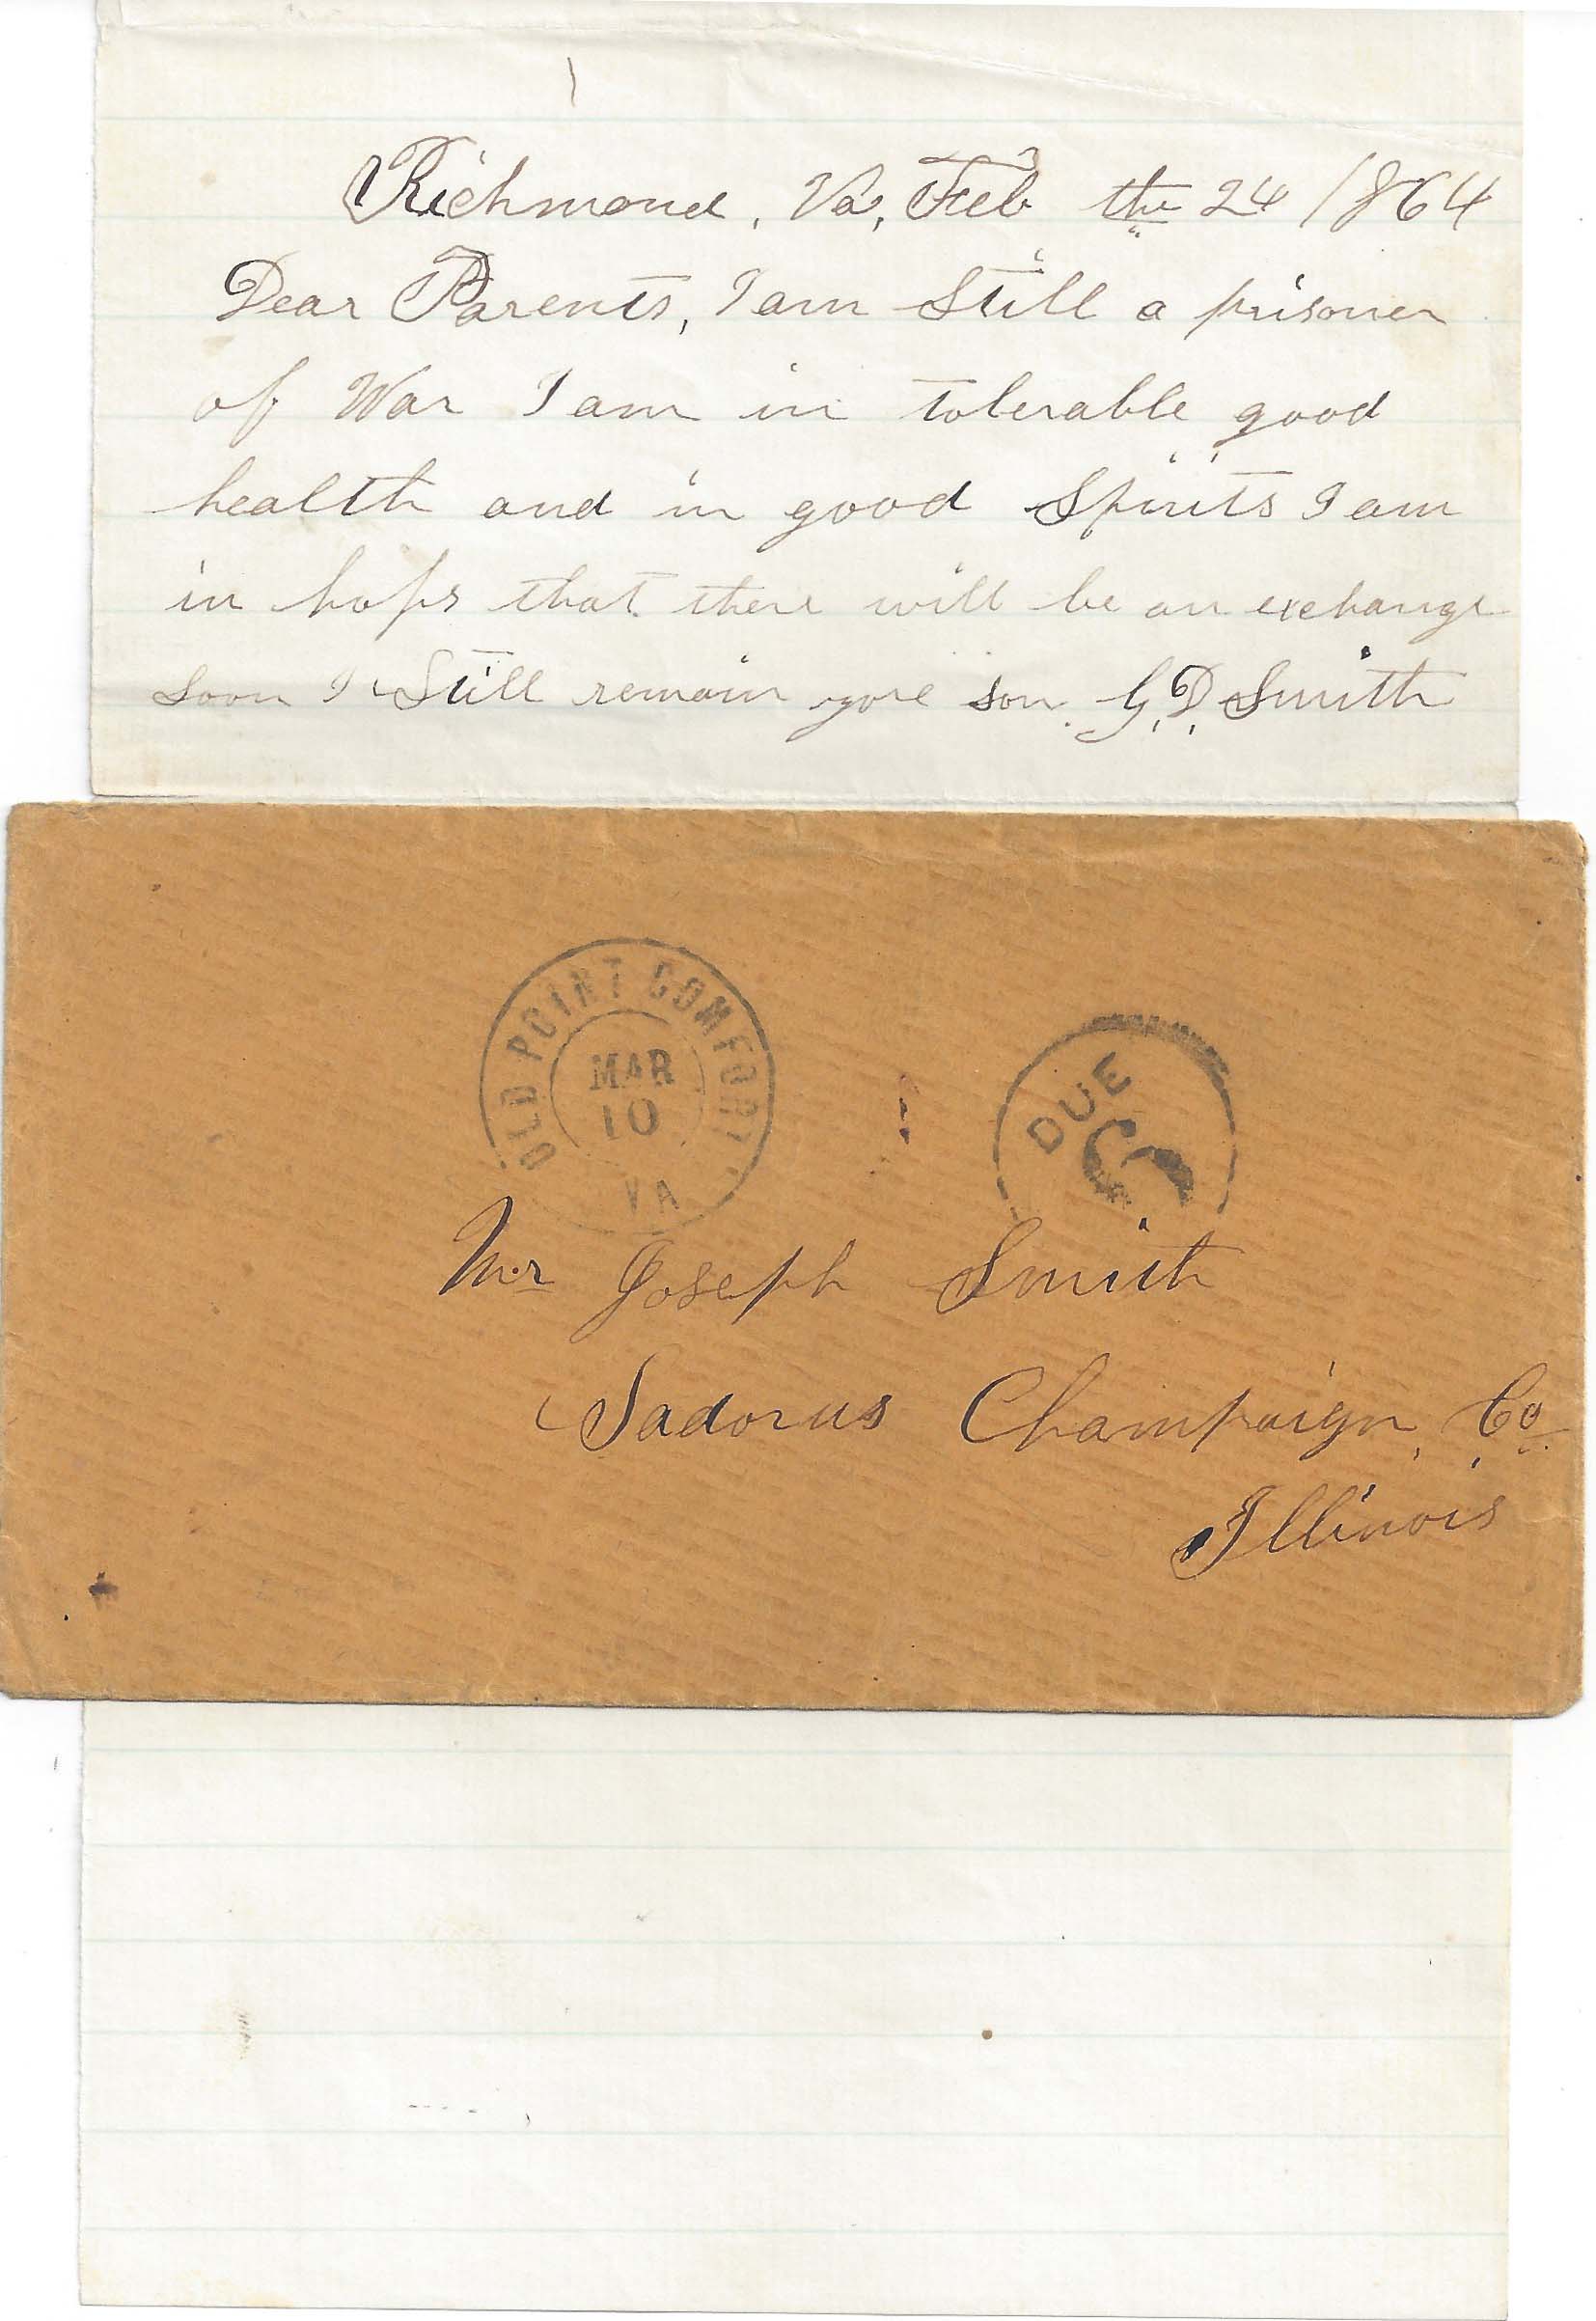 Richmond, Va, Feb the 24 1864
Dear Parents, I am Still a prisoner
of War I am in tolerable good
health and in good Spirits I am
in hops that there will be an exchange
soon I Still remain yore son. G, D, Smith
OLD POINT COMFORT
MAR
10
VA
DUE
6
Mr Joseph Smith
Sadorus Champaign, Co,
Illinois